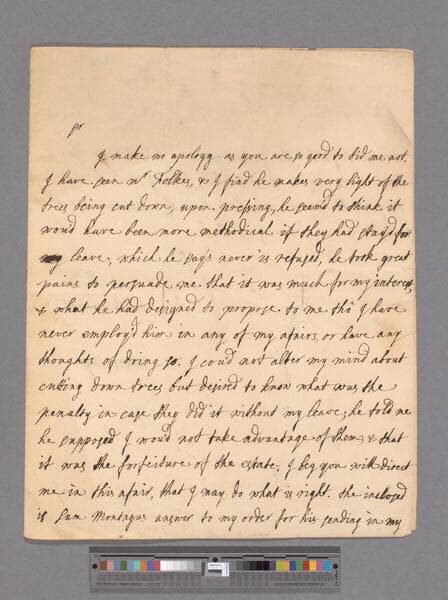 Sr
I make no apology as you are so good to bid me not.
I have seen mr Folkes, & I find he makes very light of the
trees being cut down, upon pressing, he seem'd to think it
woud have been more methodical if they had stay'd for
my leave, which he says never is refused, he took great
pains to persuade me that it was much for my interest,
& what he had designed to propose to me tho I have
never employ'd him in any of my afairs, or have any
thoughts of doing so. I coud not alter my mind about
cutting down trees but desired to know what was the
penalty in case they did it without my leave; he told me
he supposed I woud not take advantage of them, & that
it was the forfeiture of the estate. I beg you will direct
me in this afair, that I may do what is right. the inclosed
is Sam Montagus answer to my order for his sending in my